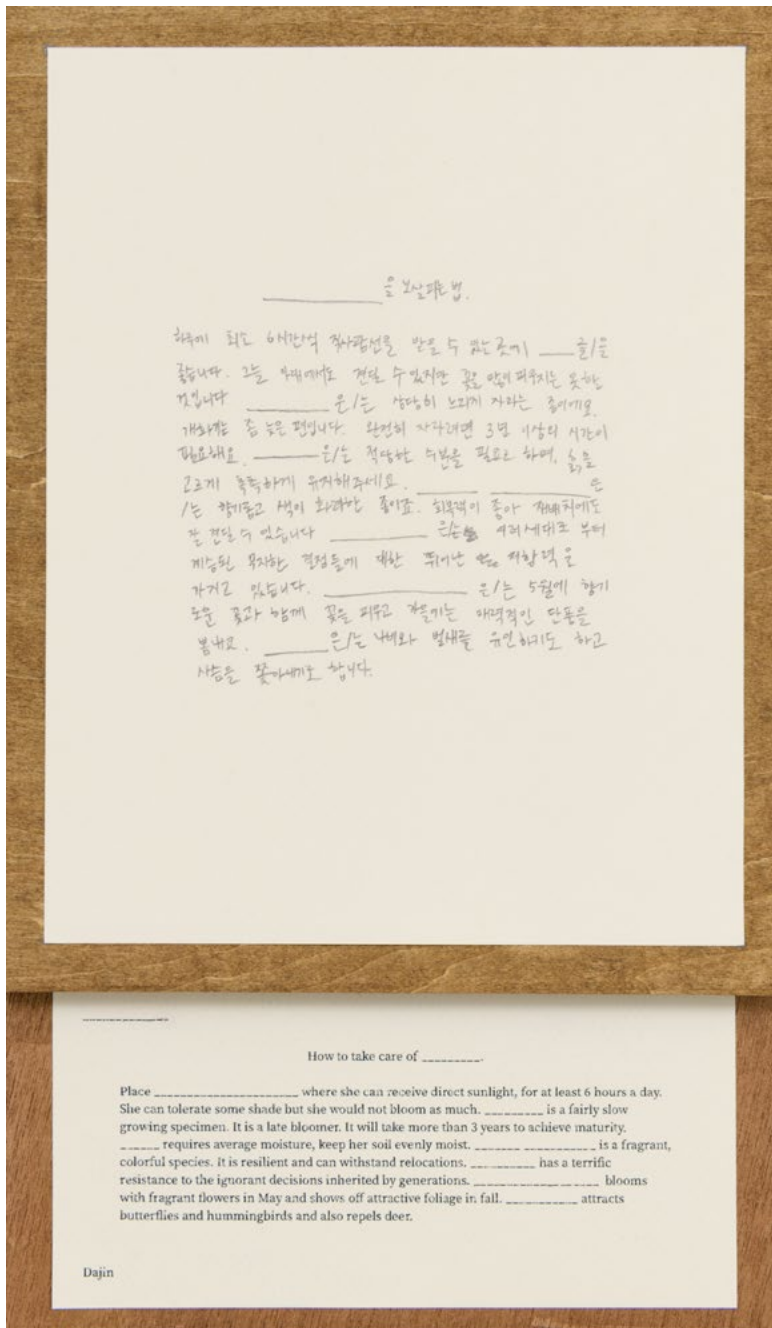 __________을 보살피는 법.
하루에 최소 6시간씩 직사광선을 받을 수 있는곳에 ____를/을
좋습니다. 그늘 아래에서도 견딜 수 있지만 꽃을 많이 피우지는 못할
것입니다 ________은/는 상당히 느리게 자라는 종이에요.
개화는 좀 늦은 편입니다. 완전히 자라려면 3년 이상의 시간이
필요해요. ______은/는 적당한 수분을 필요로 하며, 흙을
고르게 촉촉하게 유지해주세요. ______ __________은
/는 향기롭고 색이 화려한 종이죠. 회복력이 좋아 재배치에도
잘 견딜 수 있습니다 __________은/는 여러세대로 부터
계승된 무지한 결정들에 대한 뛰어난 저항력을
가지고 있습니다. ______________은/는 5월에 향기
로운 꽃과 함께 꽃을 피우고 가을에는 매력적인 단풍을
뽐내요. ______은/는 나비와 벌새를 유인하기도 하고
사슴을 쫓아내기도 합니다.
How to take care of _________.
Place ______________________ where she can receive direct sunlight, for at least 6 hours a day.
She can tolerate some shade but she would not bloom as much. _________ is a fairly slow
growing specimen. It is a late bloomer. It will take more than 3 years to achieve maturity.
______ requires average moisture, keep her soil evenly moist. _______ ___________ is a fragrant,
colorful species. It is resilient and can withstand relocations. __________ has a terrific
resistance to the ignorant decisions inherited by generations. ____________ ________ blooms
with fragrant flowers in May and shows off attractive foliage in fall. ___________ attracts
butterflies and hummingbirds and also repels deer.
Dajin